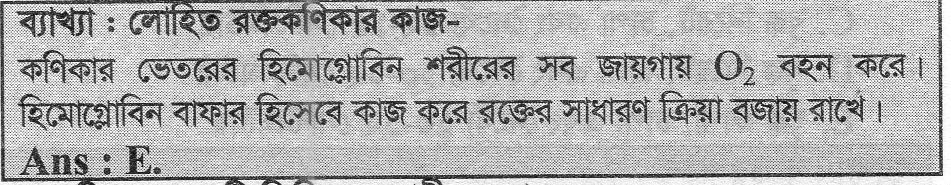 ব্যাখ্যা : লোহিত রক্তকণিকার কাজ-
কণিকার ভেতরের হিমোগ্লোবিন শরীরের সব জায়গায় O₂ বহন করে।
হিমোগ্লোবিন বাফার হিসেবে কাজ করে রক্তের সাধারণ ক্রিয়া বজায় রাখে।
Ans : E.